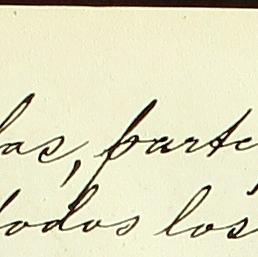 las, parte
todos los